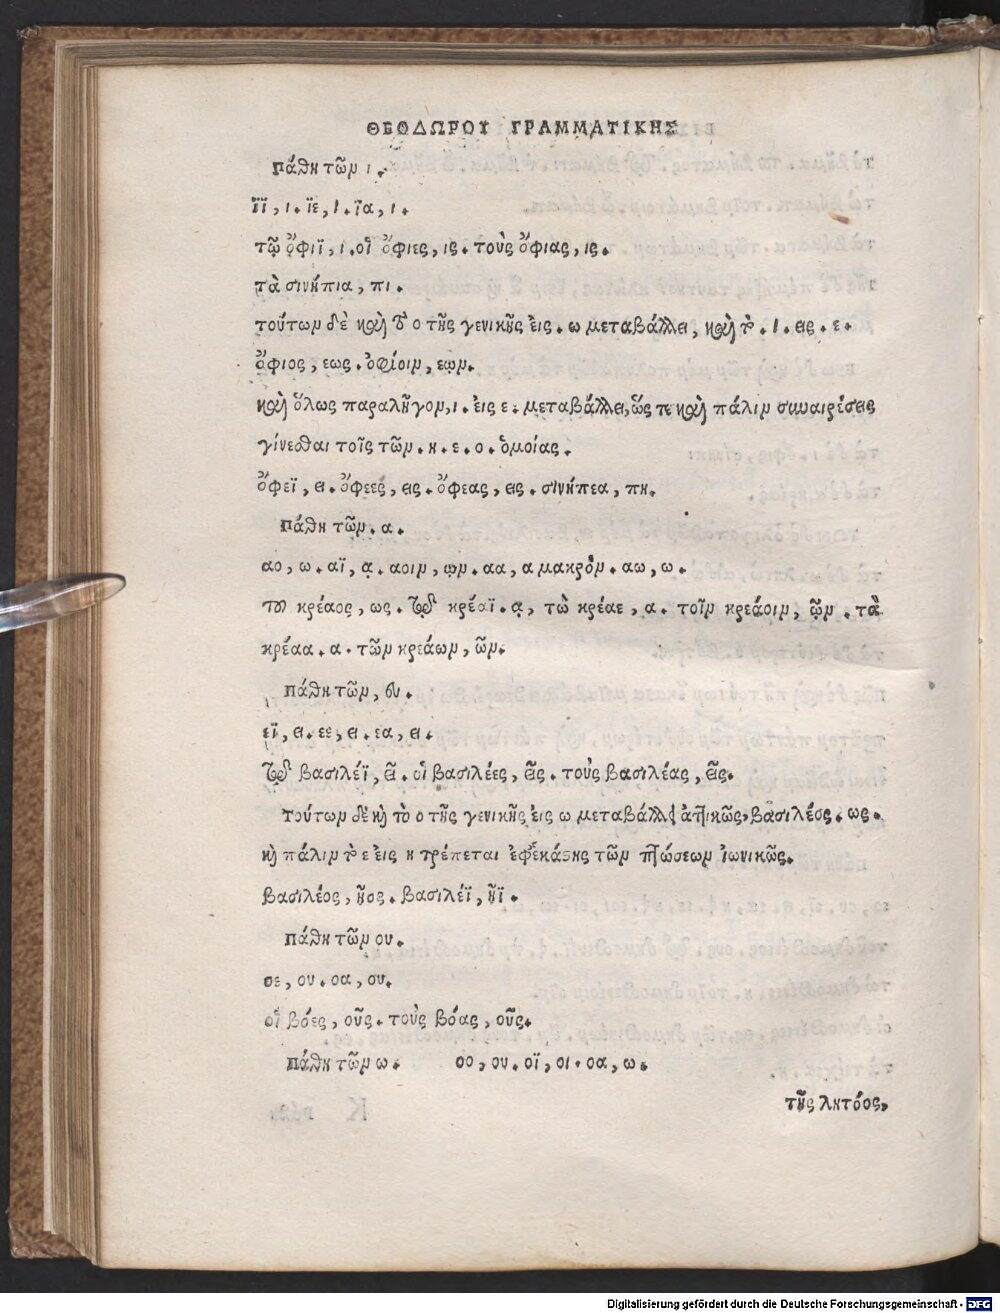 ΘΕΟΔΩΡΟΥ ΓΡΑΜΜΑΤΙΚΗΣ
Πάθη τῶν ι.
ϊϊ, ι. ϊε, ι. ϊα, ι.
τῷ ὄφιϊ, ι. οἱ ὄφιες, ις. τοὺς ὄφιας, ις.
τὰ σινήπια, πι.
τούτων δὲ καὶ τὸ ο τῆς γενικῆς εἰς. ω μεταβάλλει, καὶ τὸ. ι. εις. ε.
ὄφιος, εως. ὀφίοιν, εῳν.
καὶ ὅλως παραλῆγον, ι. εἰς ε. μεταβάλλει, ὥς τε καὶ πάλιν συναιρέσεις
γίνεσθαι τοῖς τῶν. η. ε. ο. ὁμοίας.
ὄφεϊ, ει. ὄφεες, εις. ὄφεας, εις. σινήπεα, πη.
πάθη τῶν. α.
αο, ω. αϊ, ᾳ. αοιν, ῳν. αα, α μακρὸν. αω, ω.
τοῦ κρέαος, ως. τῷ κρέαϊ. ᾳ, τὼ κρέαε, α. τοῖν κρεάοιν, ῷν. τὰ
κρέαα. α. τῶν κρεάων, ῶν.
πάθη τῶν, ευ.
εϊ, ει. εε, ει. εα, ει.
τῷ βασιλέϊ, εῖ. οἱ βασιλέες, εῖς. τοὺς βασιλέας, εῖς.
τούτων δὲ καὶ τὸ ο τῆς γενικῆς εἰς ω μεταβάλλει ἀττικῶς, βασιλέος. ως.
καὶ πάλιν τὸ ε εἰς η τρέπεται ἐφ' ἑκάστης τῶν πτώσεων ἰωνικῶς.
βασιλέος, ῆος. βασιλέϊ, ῆϊ.
πάθη τῶν ου.
οε, ου. οα, ου.
οἱ βόες, οῦς. τοὺς βόας, οῦς.
πάθη τῶν ω. οο, ου. οϊ, οι. οα, ω.
τῆς λητόος,
Digitalisierung gefördert durch die Deutsche Forschungsgemeinschaft - DFG